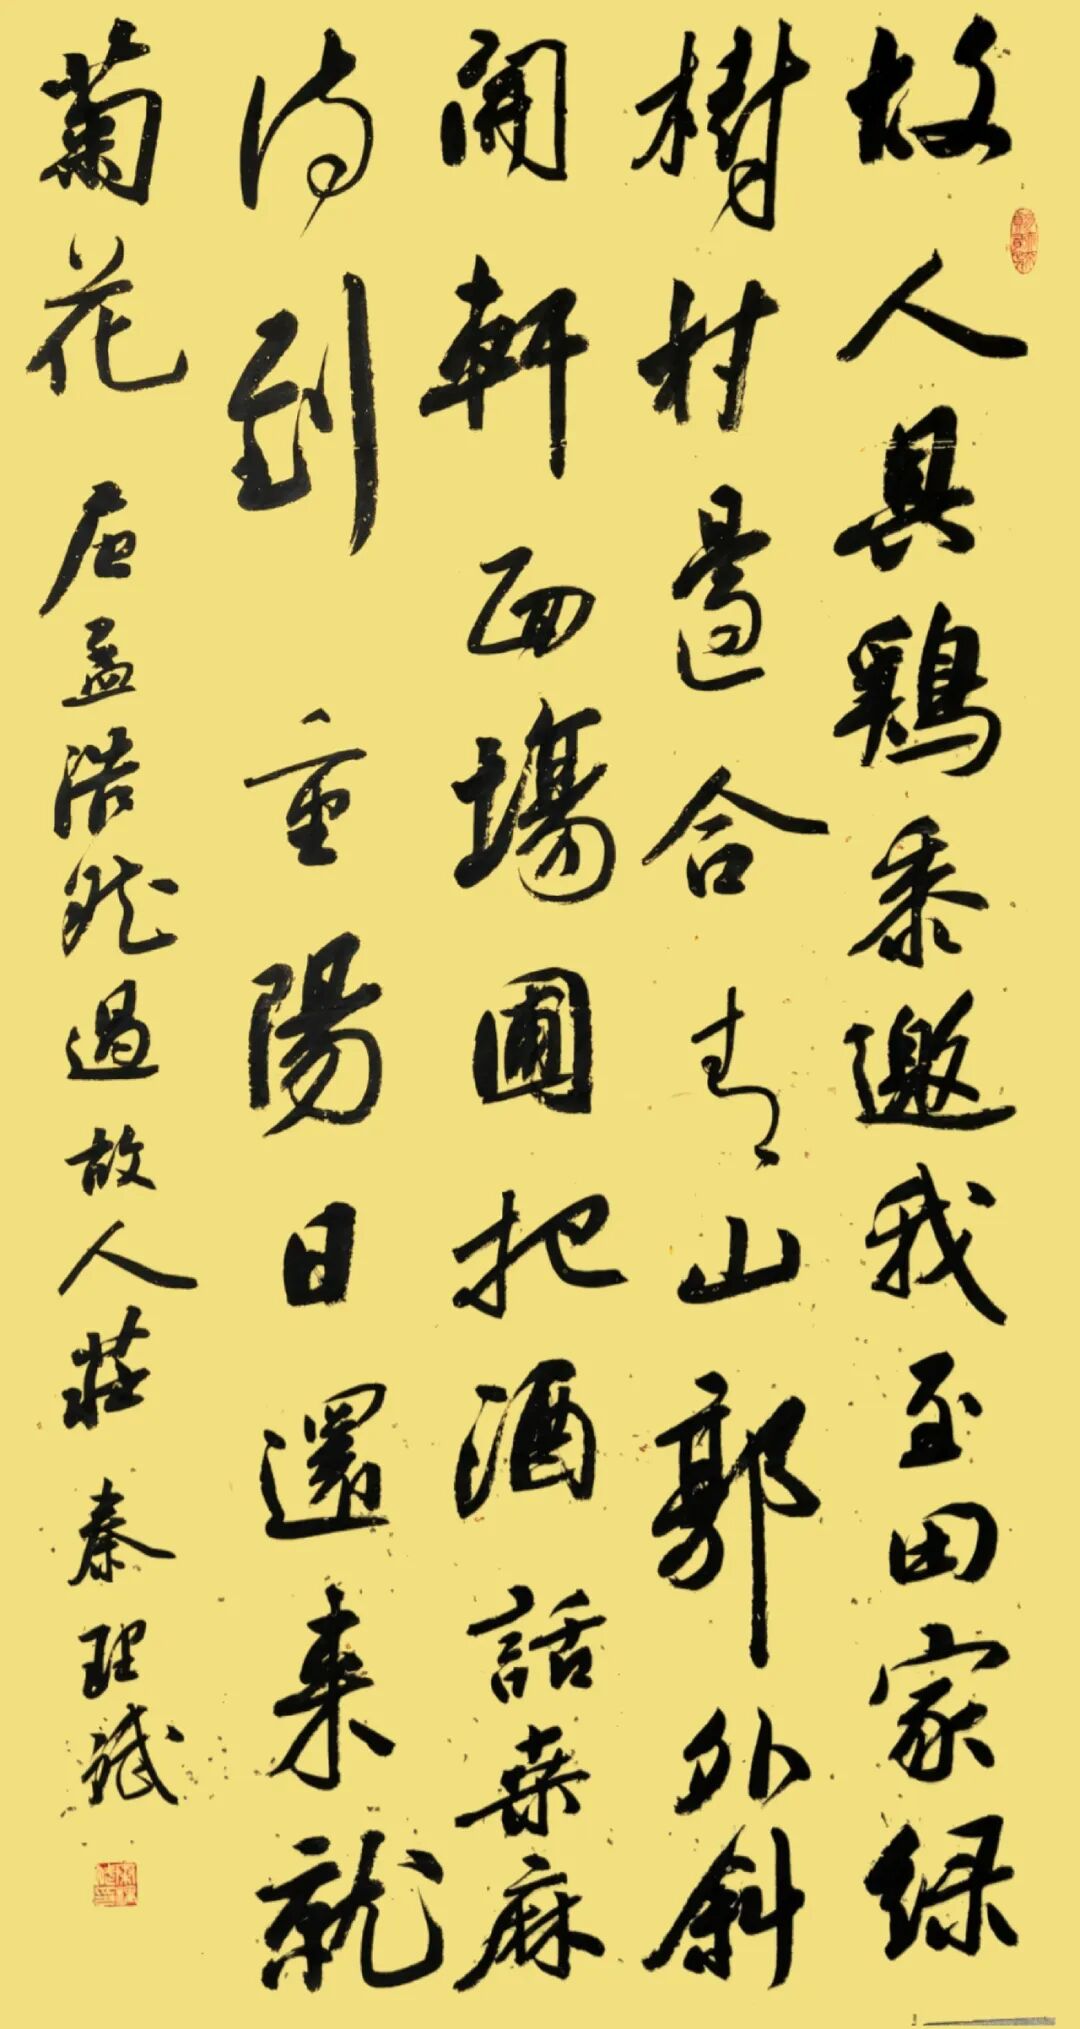 故人具鷄黍邀我至田家绿
樹村邊合青山郭外斜
開軒面場圃把酒話桑麻
待到重陽日還来就
菊花 唐孟浩然過故人莊 秦理斌